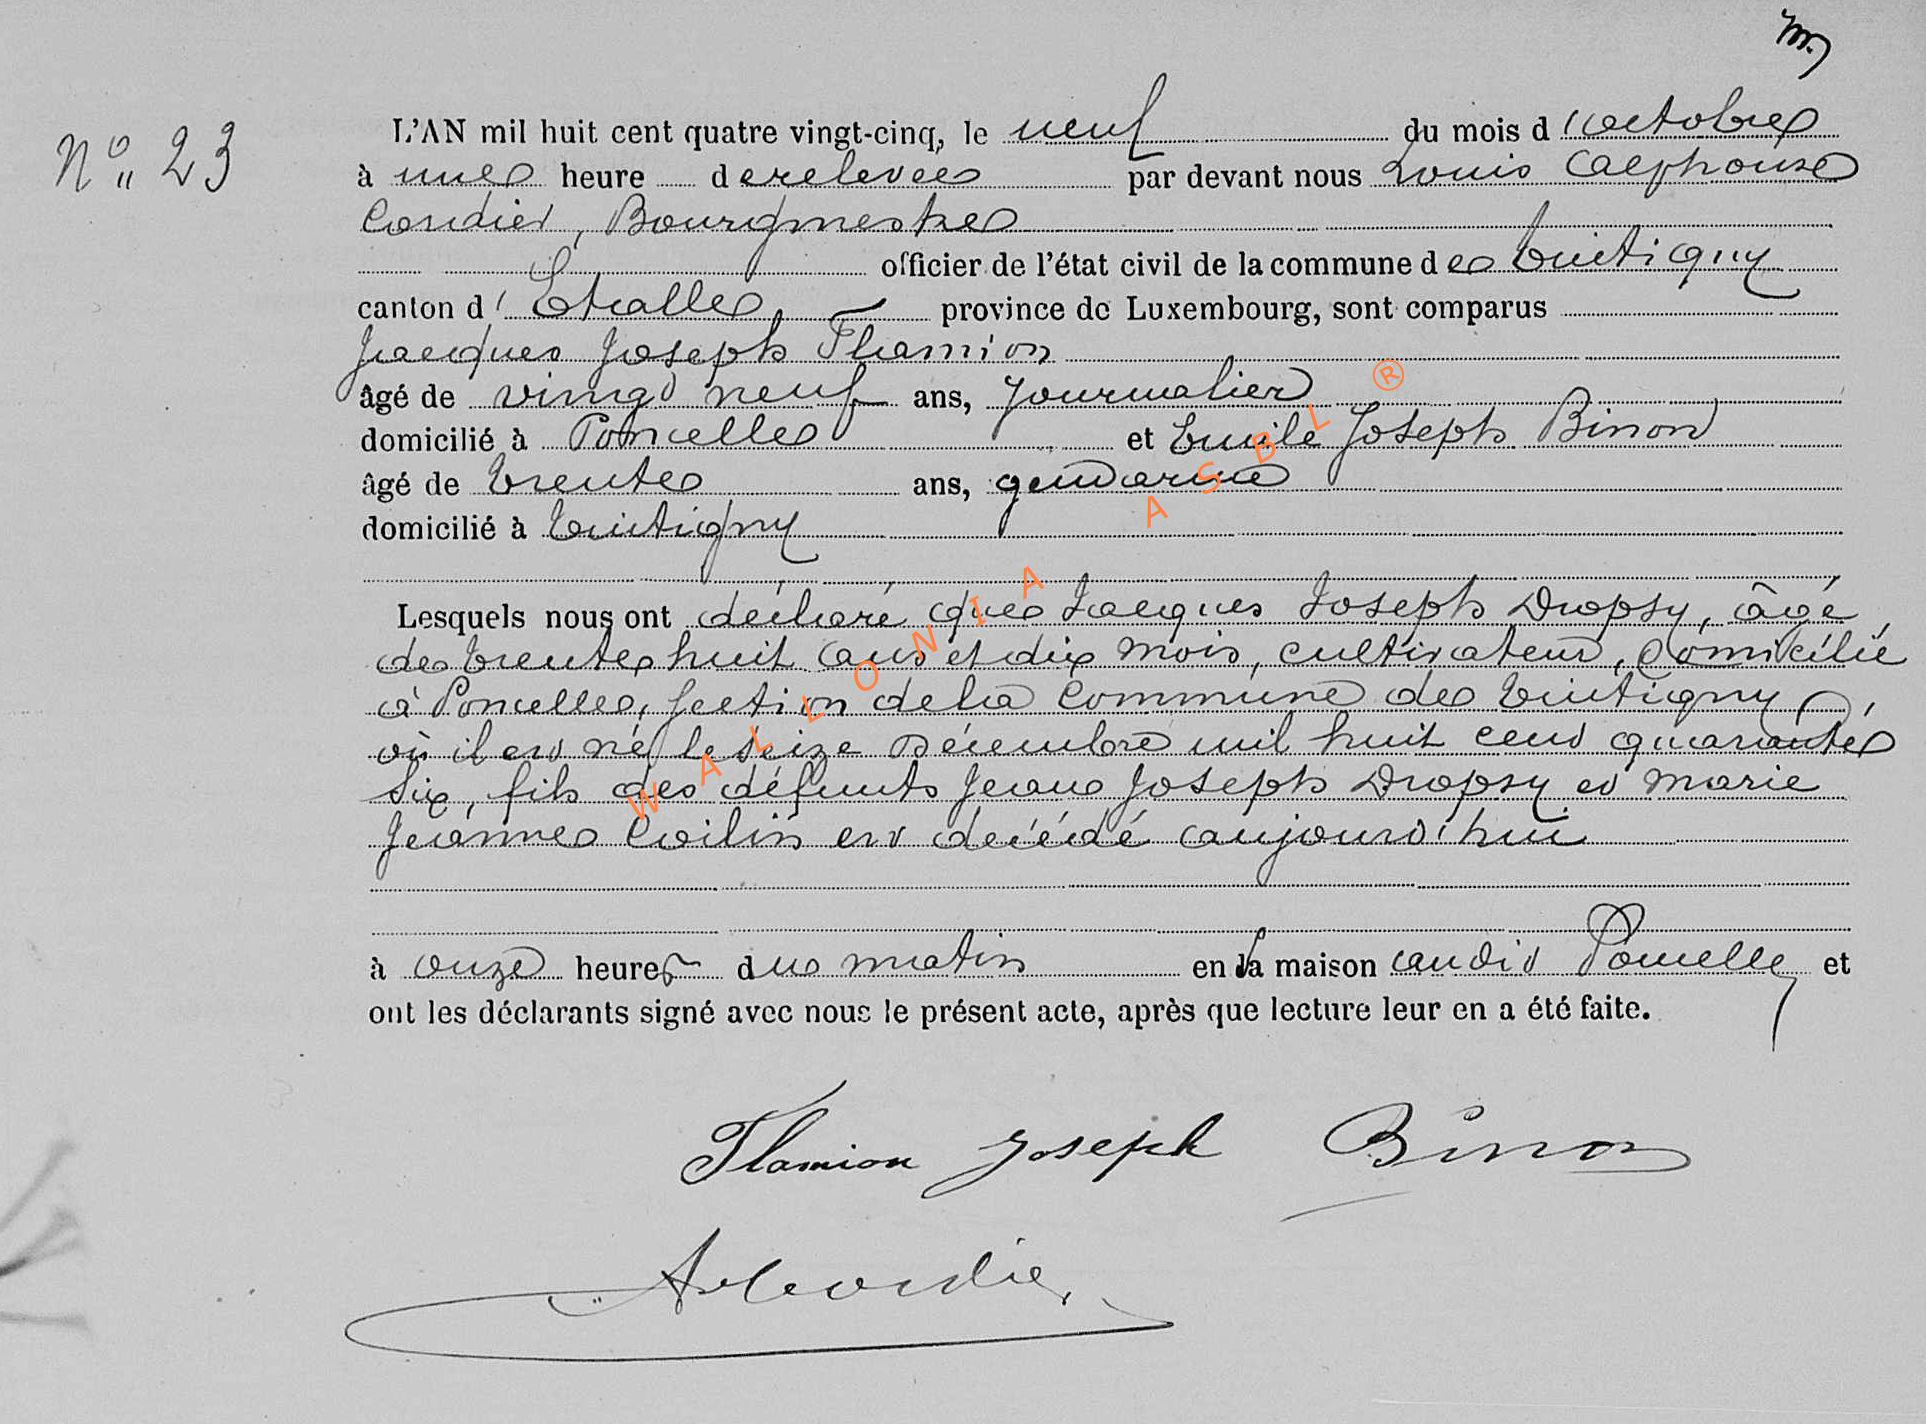 m
N° 23
L'AN mil huit cent quatre vingt-cinq, le neuf du mois d'octobre
à une heure de relevée par devant nous Louis Alphonse
Cordier, Bourgmestre
officier de l'état civil de la commune de Tintigny
canton d'Etalle province de Luxembourg, sont comparus
Jacques Joseph Flamion
âgé de vingt neuf ans, journalier
domicilié à Poncelle et Emile Joseph Binon
âgé de trente ans, gendarme
domicilié à Tintigny
Lesquels nous ont déclaré que Jacques Joseph Dropsy, âgé
de trente huit ans et dix mois, cultivateur, domicilié
à Poncelle, section de la commune de Tintigny,
où il est né le seize Décembre mil huit cent quarante
six, fils des défunts Jean Joseph Dropsy et Marie
Jeanne Collin est décédé aujourd'hui
à onze heures du matin en sa maison audit Poncelle et
ont les déclarants signé avec nous le présent acte, après que lecture leur en a été faite.
Flamion Joseph Binon
A Cordier
WALLONIA ASBL ®